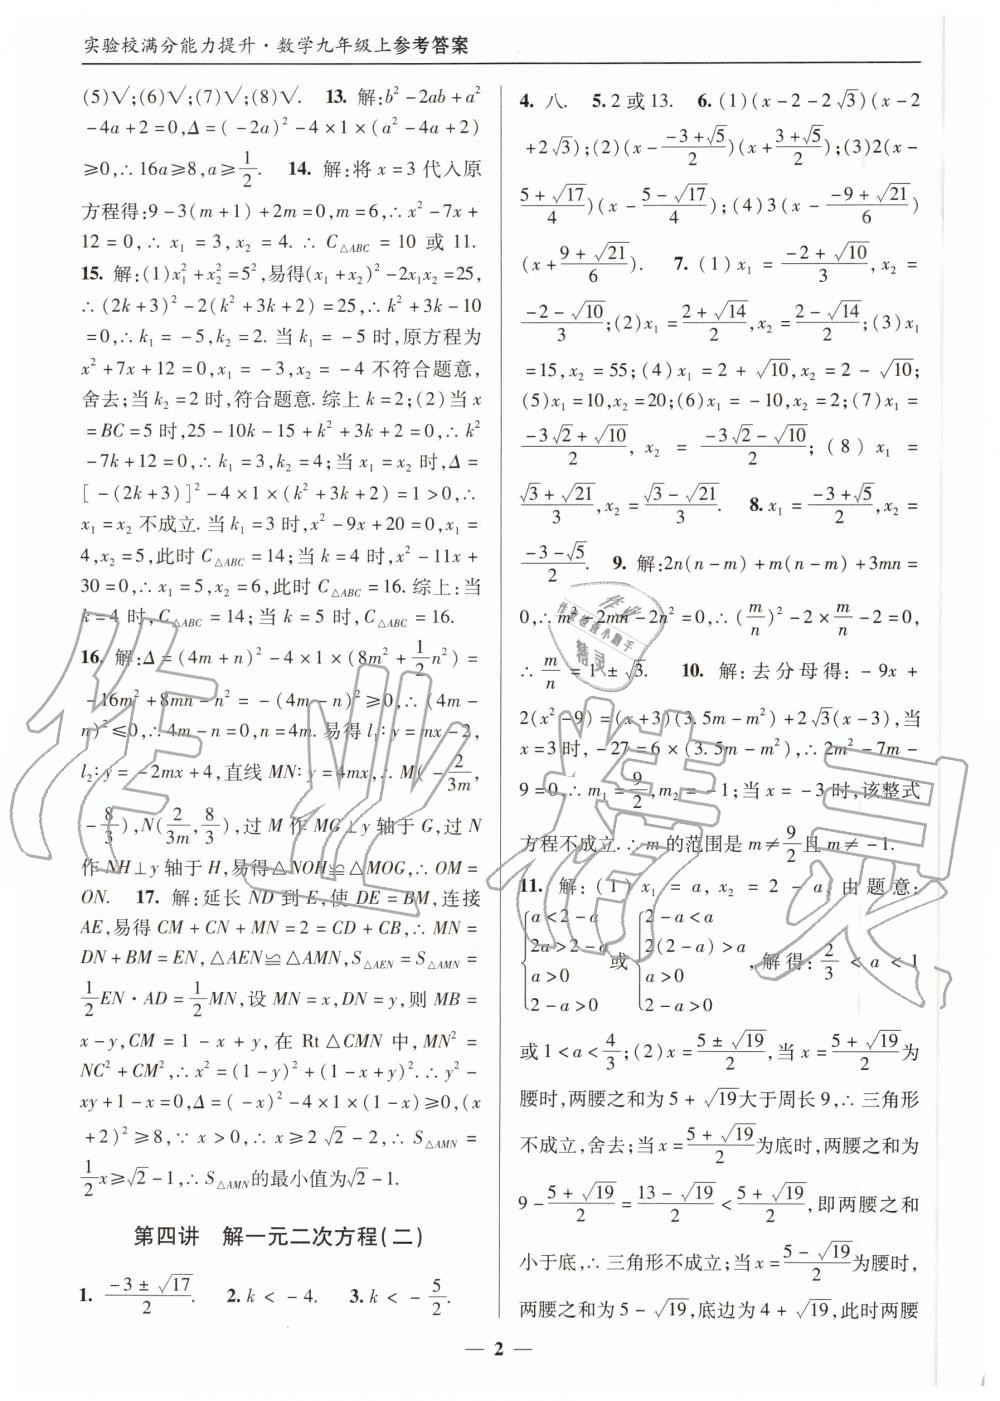 实验校满分能力提升·数学九年级上参考答案
(5)√;(6)√;(7)√;(8)√. 13. 解:b²-2ab+a²
-4a+2=0,Δ=(-2a)²-4×1×(a²-4a+2)
≥0,∴16a≥8,a≥1/2. 14. 解:将x=3代入原
方程得:9-3(m+1)+2m=0,m=6,∴x²-7x+
12=0,∴x₁=3,x₂=4.∴C△ABC=10或11.
15. 解:(1)x₁²+x₂²=5²,易得(x₁+x₂)²-2x₁x₂=25,
∴(2k+3)²-2(k²+3k+2)=25,∴k²+3k-10
=0,∴k₁=-5,k₂=2.当k₁=-5时,原方程为
x²+7x+12=0,x₁=-3,x₂=-4不符合题意,
舍去;当k₂=2时,符合题意.综上k=2;(2)当x
=BC=5时,25-10k-15+k²+3k+2=0,∴k²
-7k+12=0,∴k₁=3,k₂=4;当x₁=x₂时,Δ=
[-(2k+3)]²-4×1×(k²+3k+2)=1>0,∴
x₁=x₂不成立.当k₁=3时,x²-9x+20=0,x₁=
4,x₂=5,此时C△ABC=14;当k=4时,x²-11x+
30=0,∴x₁=5,x₂=6,此时C△ABC=16.综上:当
k=4时,C△ABC=14;当k=5时,C△ABC=16.
16. 解:Δ=(4m+n)²-4×1×(8m²+1/2n²)=
-16m²+8mn-n²=-(4m-n)²≥0,∴(4m-
n)²≤0,∴4m-n=0,n=4m.易得l₁:y=mx-2,
l₂:y=-2mx+4,直线MN:y=4mx,∴M(-2/3m,
-8/3),N(2/3m,8/3),过M作MG⊥y轴于G,过N
作NH⊥y轴于H,易得△NOH≌△MOG,∴OM=
ON. 17. 解:延长ND到E,使DE=BM,连接
AE,易得CM+CN+MN=2=CD+CB,∴MN=
DN+BM=EN,△AEN≌△AMN,S△AEN=S△AMN=
1/2EN·AD=1/2MN,设MN=x,DN=y,则MB=
x-y,CM=1-x+y,在Rt△CMN中,MN²=
NC²+CM²,∴x²=(1-y)²+(1-x+y)².∴y²-
xy+1-x=0,Δ=(-x)²-4×1×(1-x)≥0,(x
+2)²≥8,∵x>0,∴x≥2√2-2,∴S△AMN=
1/2x≥√2-1,∴S△AMN的最小值为√2-1.
第四讲 解一元二次方程(二)
1. (-3±√17)/2. 2. k<-4. 3. k<-5/2.
4. 八. 5. 2或13. 6. (1)(x-2-2√3)(x-2
+2√3);(2)(x-(-3+√5)/2)(x+(3+√5)/2);(3)2(x-
(5+√17)/4)(x-(5-√17)/4);(4)3(x-(-9+√21)/6)
(x+(9+√21)/6). 7. (1)x₁=(-2+√10)/3,x₂=
(-2-√10)/3;(2)x₁=(2+√14)/2,x₂=(2-√14)/2;(3)x₁
=15,x₂=55;(4)x₁=2+√10,x₂=2-√10;
(5)x₁=10,x₂=20;(6)x₁=-10,x₂=2;(7)x₁=
(-3√2+√10)/2,x₂=(-3√2-√10)/2;(8)x₁=
(√3+√21)/3,x₂=(√3-√21)/3. 8. x₁=(-3+√5)/2,x₂=
(-3-√5)/2. 9. 解:2n(n-m)+m(n-m)+3mn=
0,∴m²-2mn-2n²=0,∴(m/n)²-2×m/n-2=0,
∴m/n=1±√3. 10. 解:去分母得:-9x+
2(x²-9)=(x+3)(3.5m-m²)+2√3(x-3),当
x=3时,-27=6×(3.5m-m²),∴2m²-7m-
9=0,∴m₁=9/2,m₂=-1;当x=-3时,该整式
方程不成立.∴m的范围是m≠9/2且m≠-1.
11. 解:(1)x₁=a,x₂=2-a,由题意:
{a<2-a 2a>2-a a>0 2-a>0 或 {2-a<a 2(2-a)>a a>0 2-a>0 ,解得:2/3<a<1
或1<a<4/3;(2)x=(5±√19)/2,当x=(5+√19)/2为
腰时,两腰之和为5+√19大于周长9,∴三角形
不成立,舍去;当x=(5+√19)/2为底时,两腰之和为
9-(5+√19)/2=(13-√19)/2<(5+√19)/2,即两腰之和
小于底,∴三角形不成立;当x=(5-√19)/2为腰时,
两腰之和为5-√19,底边为4+√19,此时两腰
— 2 —
作业精灵
作业
作业检查小助手
精灵